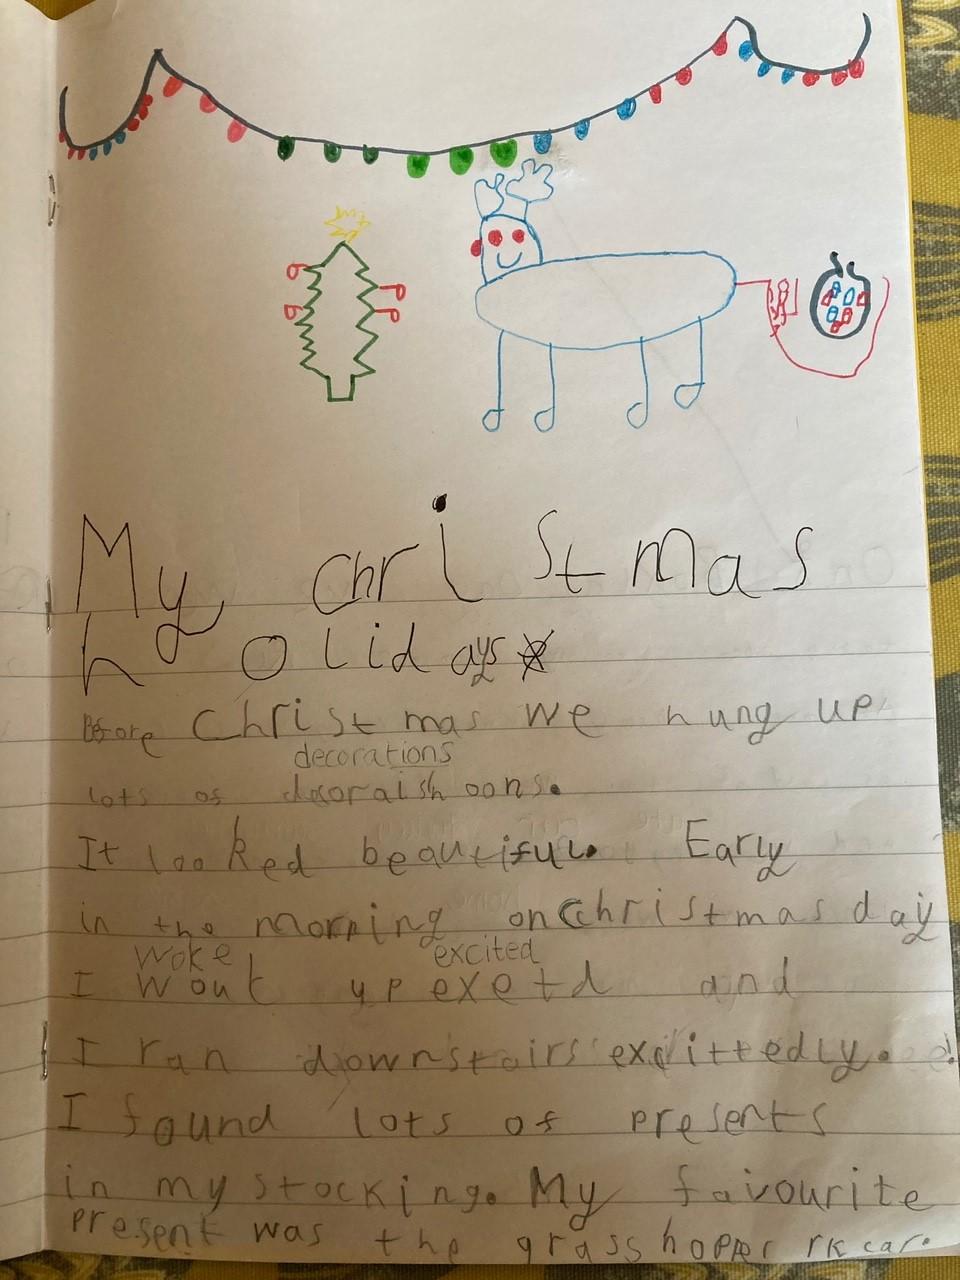 My christmas
holidays
Before Christmas we hung up
decorations
lots of decoraishoons.
It looked beautiful. Early
in the morning on Christmas day
woke excited
I wout up exetd and
I ran downstairs excittedly.
I found lots of presents
in my stocking. My favourite
present was the grasshopper rk car.